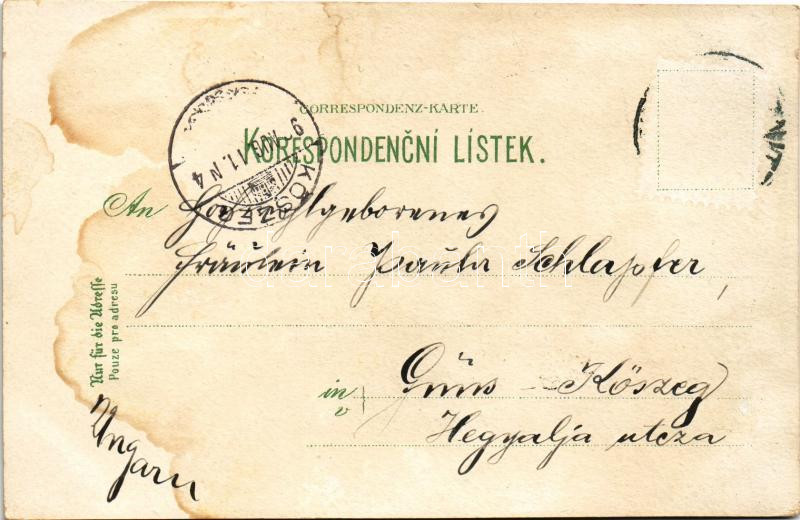 CORRESPONDENZ-KARTE.
KORESPONDENČNÍ LÍSTEK.
KŐSZEG
An Hochwohlgeborenes
Fräulein Paula Schlapfer,
in Güns - Kőszeg
v Hegyalja utcza
Ungarn
Nur für die Adresse
Pouze pro adresu